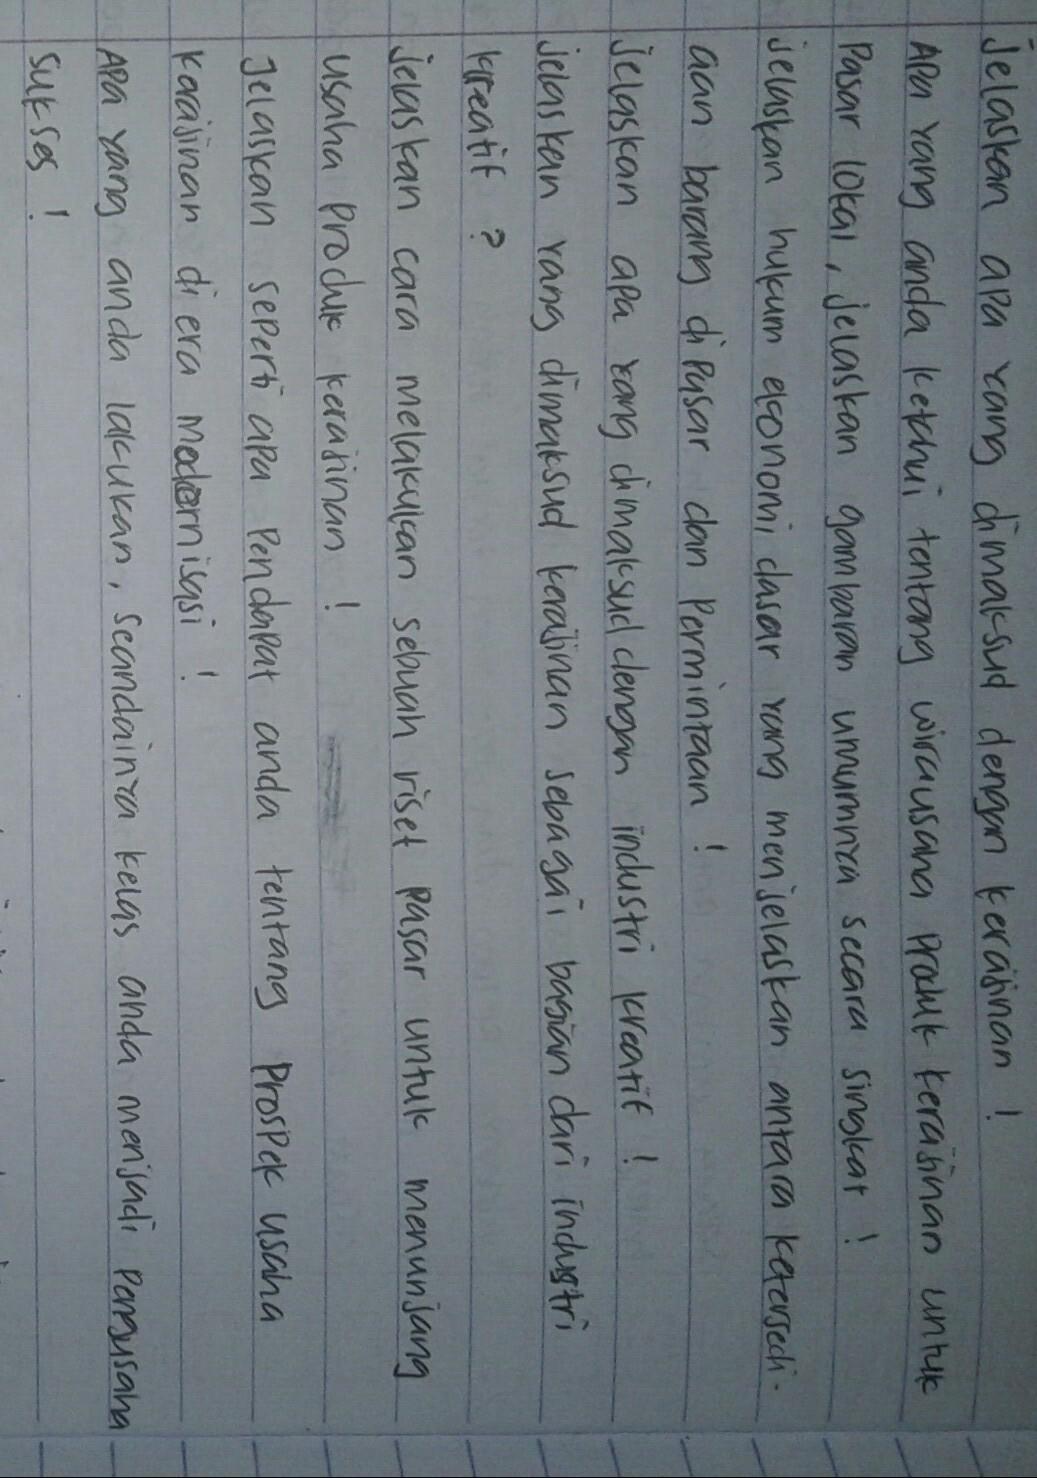 Jelaskan apa yang dimaksud dengan kerajinan !
Apa yang anda ketahui tentang wirausaha produk kerajinan untuk
Pasar lokal, jelaskan gambaran umumnya secara singkat !
jelaskan hukum ekonomi dasar yang menjelaskan antara ketersedi-
aan barang dipasar dan Permintaan !
jelaskan apa yang dimaksud dengan industri kreatif !
jelaskan yang dimaksud kerajinan sebagai bagian dari industri
kreatif ?
jelaskan cara melakukan sebuah riset pasar untuk menunjang
usaha produk kerajinan !
Jelaskan seperti apa Pendapat anda tentang Prospek usaha
Keajinan di era modernisasi !
Apa yang anda lakukan, seandainya kelas anda menjadi Pengusaha
sukses !